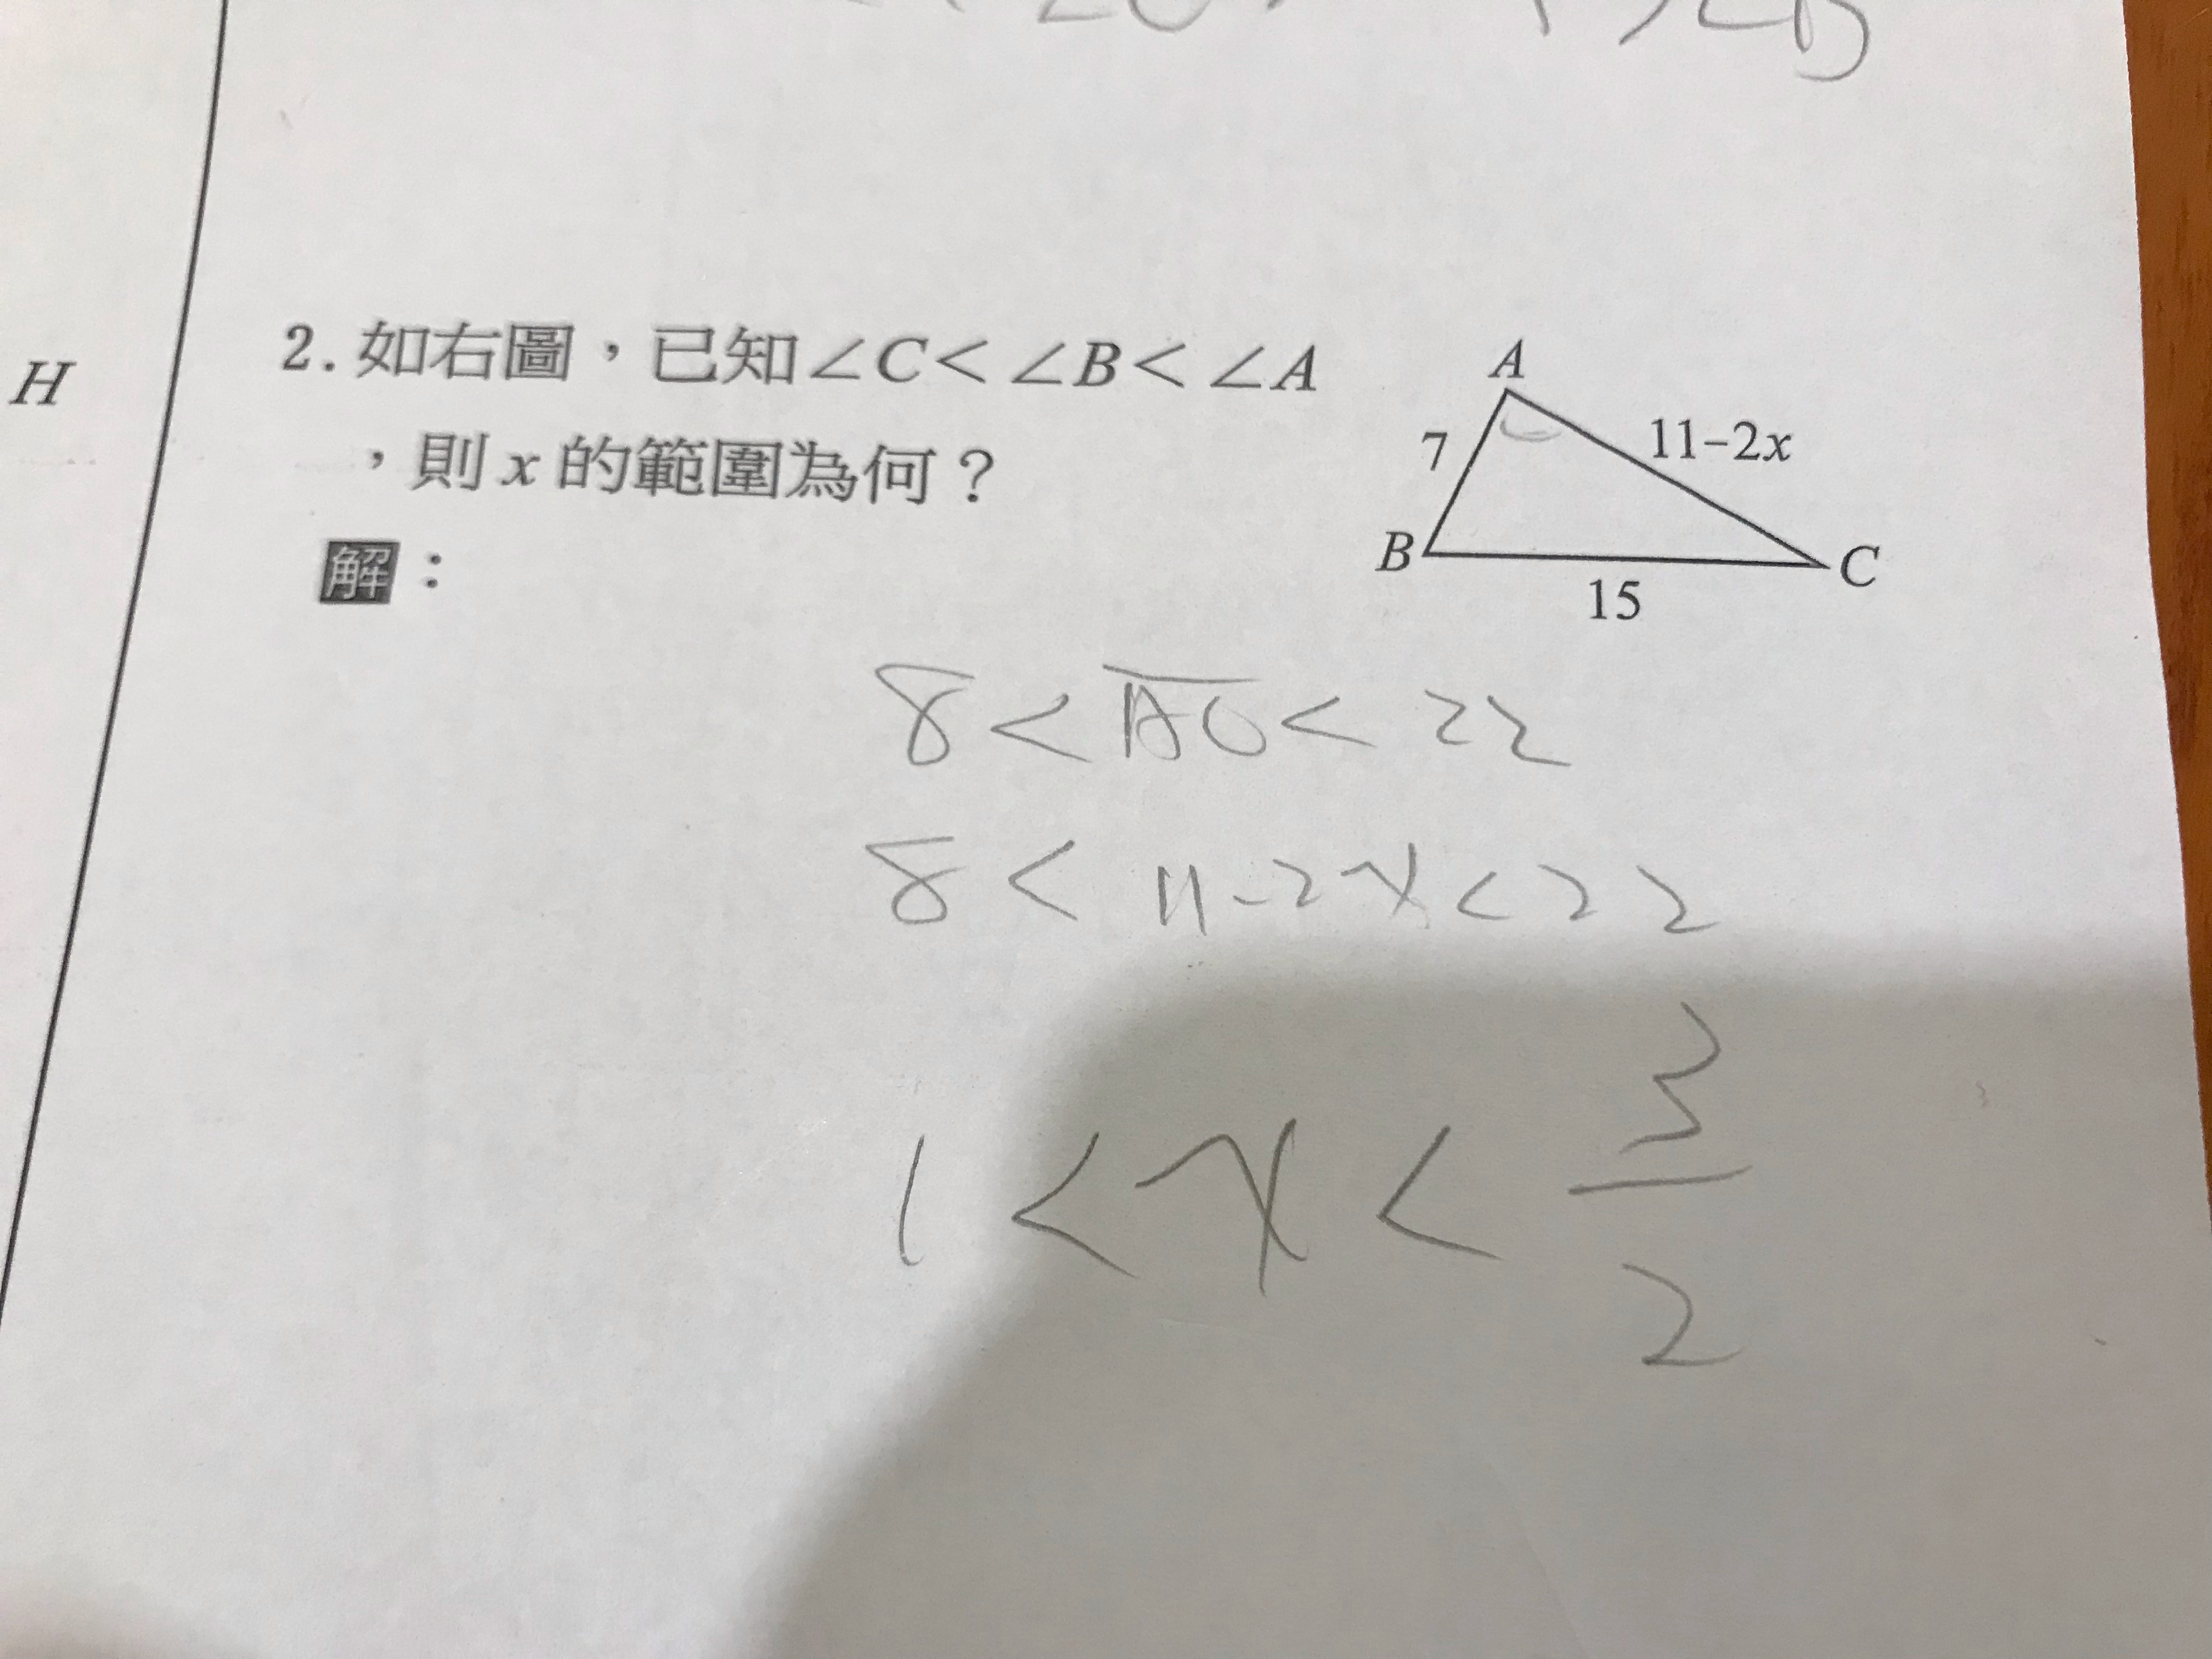 H
2. 如右圖，已知∠C<∠B<∠A
，則 x 的範圍為何？
解：
A
7
11-2x
B
C
15
8<AC<22
8<11-2x<22
1<x<3/2